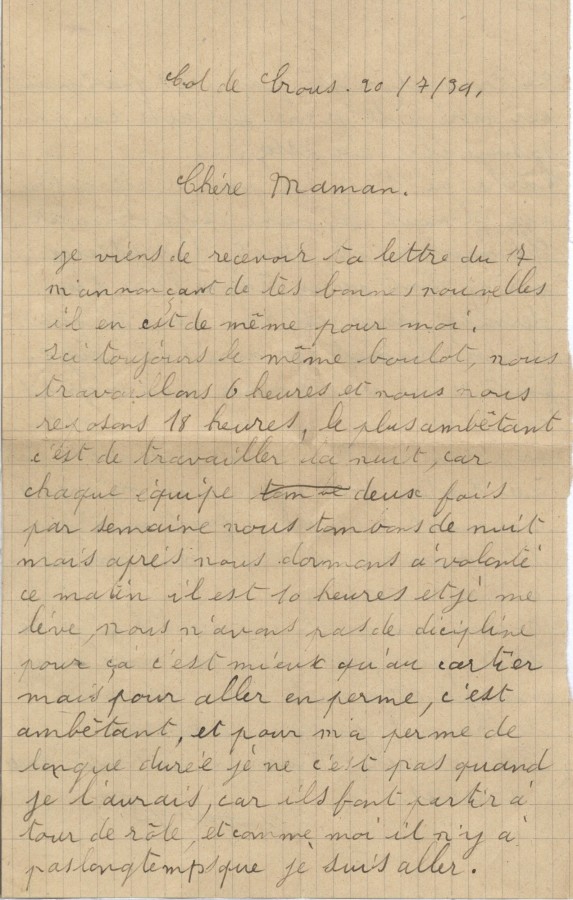 Col de Crous. 20/7/39.
Chére Maman.
je viens de recevoir ta lettre du 17
m'annonçant de tes bonnes nouvelles
il en est de même pour moi.
Ici toujours le même boulot, nous
travaillons 6 heures et nous nous
reposons 18 heures, le plus ambêtant
c'est de travailler la nuit, car
chaque équipe deux fois
par semaine nous tombons de nuit
mais aprés nous dormons a volonté
ce matin il est 10 heures et jé me
léve, nous n'avons pas de dicipline
pour ça c'est mieux qu'au cartier
mais pour aller en perme, c'est
ambêtant, et pour m'a perme de
longue durée jé ne c'est pas quand
je l'aurais, car ils font partir a
tour de rôle, et comme moi il n'y a
pas longtemps que jé suis aller.